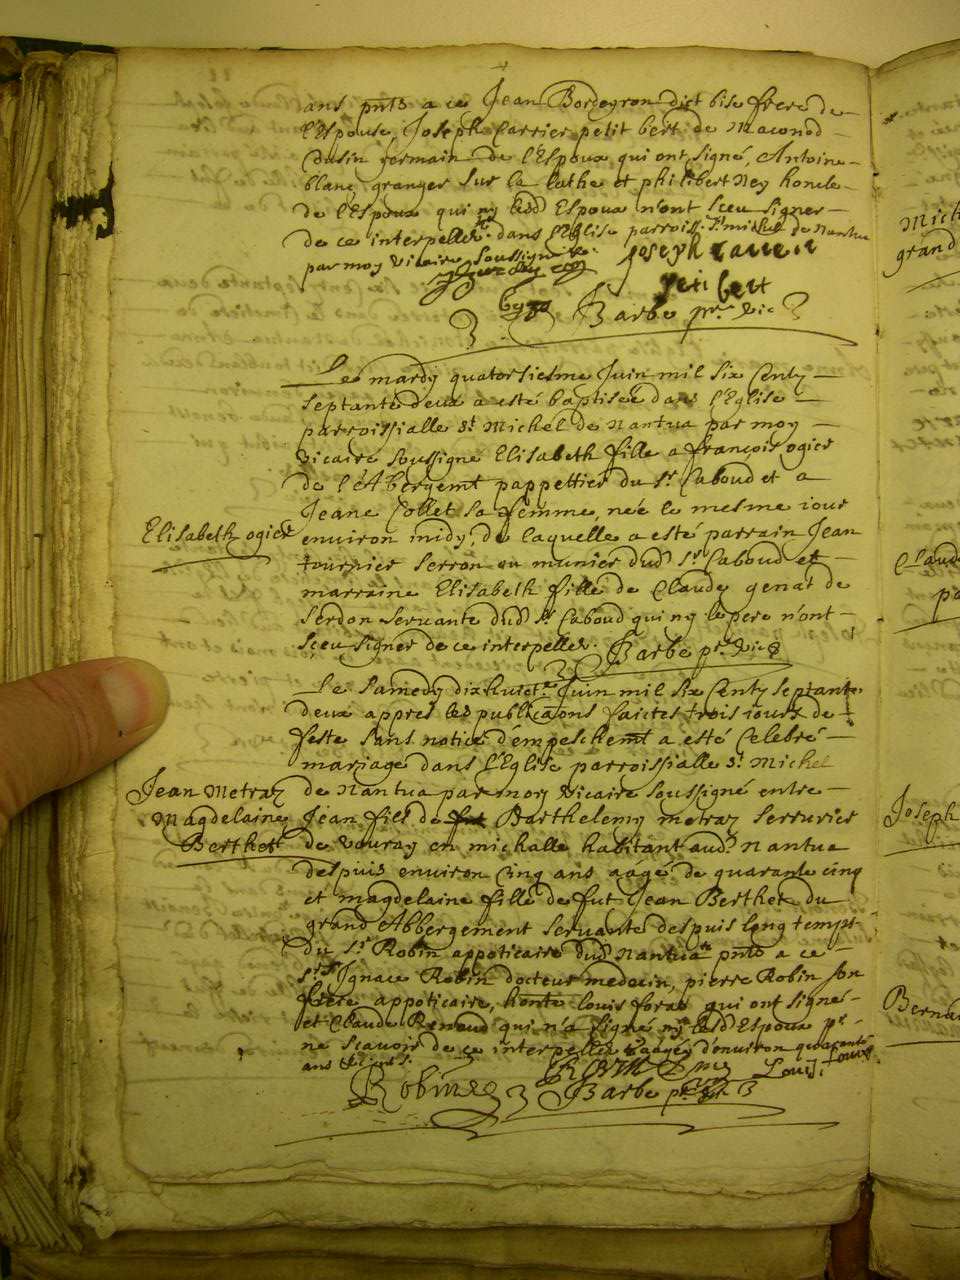 ans pnts a ce Jean Bordegron dict bise frere de
l'Espouse, Joseph Carrier petit bert de Maconod
Cusin germain de l'Espoux qui ont signé, Antoine
blanc granger sur la Cathe et philibert Ney
de l'Espoux qui ny lesd Espoux n'ont sceu signer
de ce interpellés. dans l'Eglise parroiss. St michel de Nantua
par moy Vicaire soussigné
Joseph carrier
petibert
Barbe pr. vic.
Le mardy quatorsiesme Juin mil six Centz
septante deux a esté baptisée dans l'Eglise
parroissialle St Michel de Nantua par moy
vicaire soussigné Elisabeth fille a françois ogier
de l'Abergemt pappettier du Sr Caboud et a
Jeane Collet sa femme, née le mesme iour
Elisabeth ogier
environ midy, de laquelle a esté parrain Jean
tournier serron ou munier dud Sr Caboud et
marraine Elisabeth fille de Claude genat de
Serdon servante dud Sr Caboud qui ny le pere n'ont
sceu signer de ce interpellés. Barbe pr. vic.
Le Samedy dixhuict Juin mil six Centz septante
deux appres les publicaons faictes trois iours de
feste sans notice d'empeschemt a esté Celebré
mariage dans l'Eglise parroissialle St Michel
Jean Metraz
Magdelaine
Berthet
de Nantua par moy Vicaire soussigné entre
Jean fils de Barthelemy metraz serrurier
de Vouray en michalle habitant aud Nantua
despuis environ Cinq ans aagé de quarante cinq
et magdelaine fille de fut Jean Berthet du
grand Abbergement servante despuis long temps
du Sr Robin appoticaire dud Nantua pnts a ce
Sr Ignace Robin docteur medecin, pierre Robin son
frere appoticaire, honte louis foras qui ont signé
et Claude Renaud qui n'a signé ny lesd Espoux pr
ne scavoir de ce interpellés aagéz d'environ quarante
ans
Robin Louis
Robin Barbe pr. vic.
Mich
grand
Claude
pa
Joseph
Berna